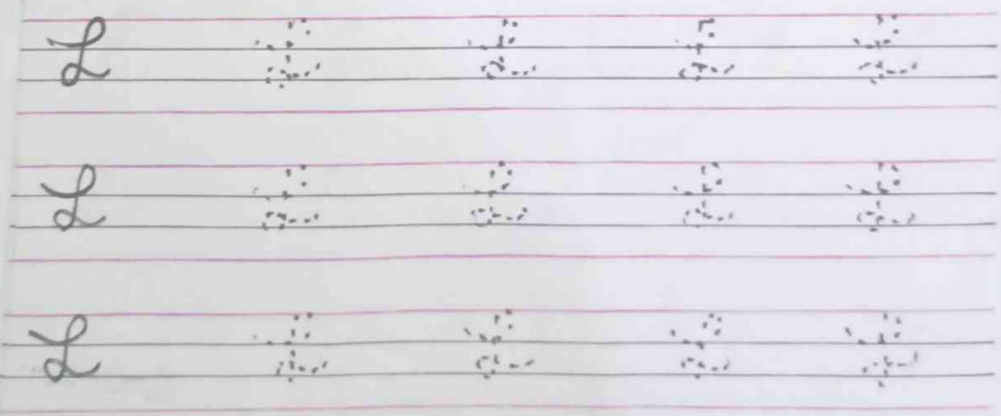 L L L L L
L L L L L
L L L L L